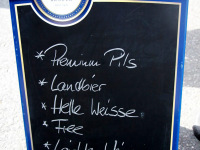 * Premium Pils
* Landbier
* Helle Weisse
* Free